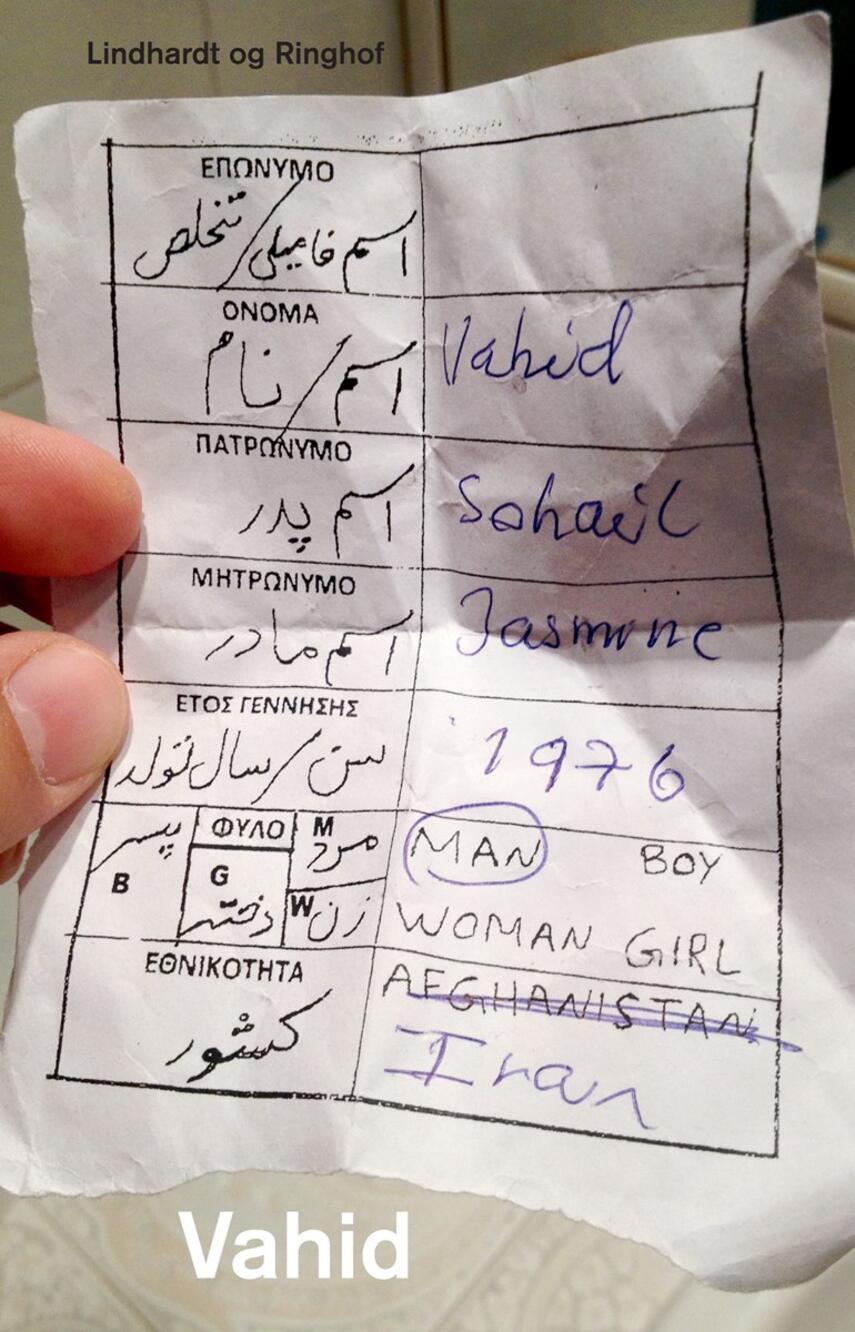 Lindhardt og Ringhof
ΕΠΩΝΥΜΟ
اسم فامیلی/تخلص
ΟΝΟΜΑ
اسم/نام
Vahid
ΠΑΤΡΩΝΥΜΟ
اسم پدر
Sohail
ΜΗΤΡΩΝΥΜΟ
اسم مادر
Jasmine
ΕΤΟΣ ΓΕΝΝΗΣΗΣ
سن/سال تولد
1976
پسر
B
ΦΥΛΟ
G
دختر
M
مرد
W
زن
MAN BOY
WOMAN GIRL
ΕΘΝΙΚΟΤΗΤΑ
کشور
AFGHANISTAN
Iran
Vahid